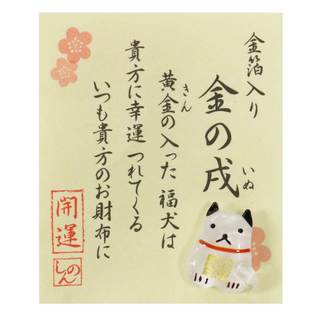 金箔入り
金の戌
いぬ
黄金の入った福犬は
きん
貴方に幸運つれてくる
いつも貴方のお財布に
開運
しんのん